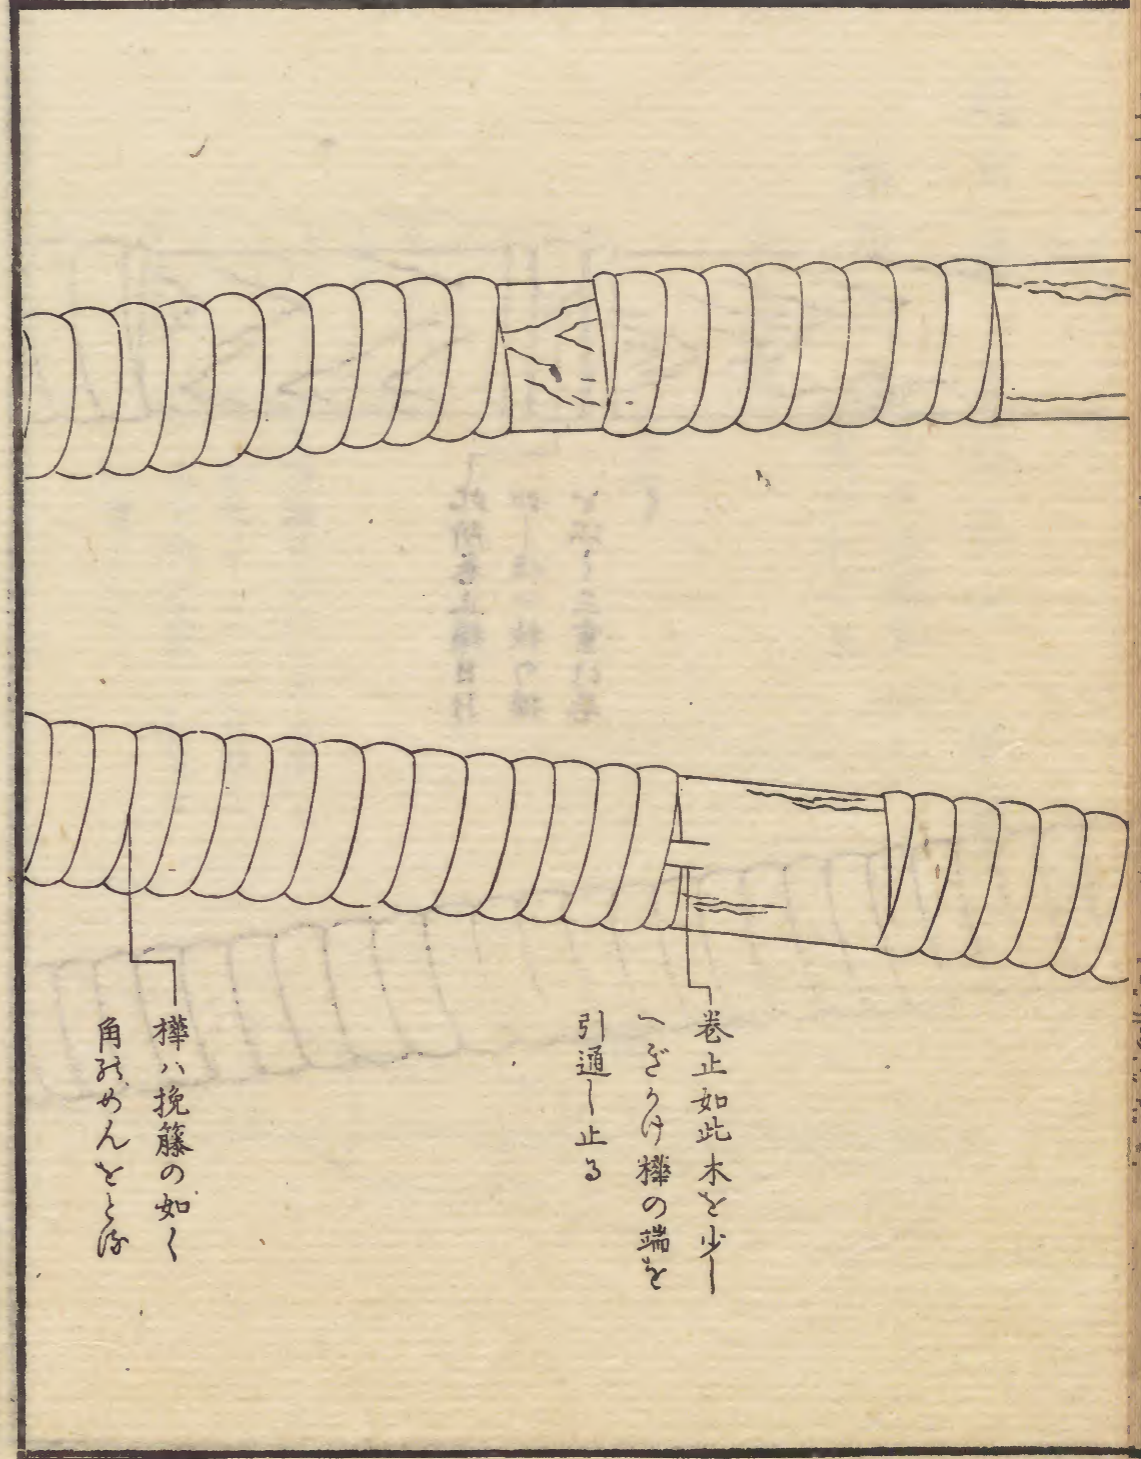 巻止如此木を少し
へぎかけ樺の端を
引通し止る
樺ハ挽籐の如く
角のめんをとる